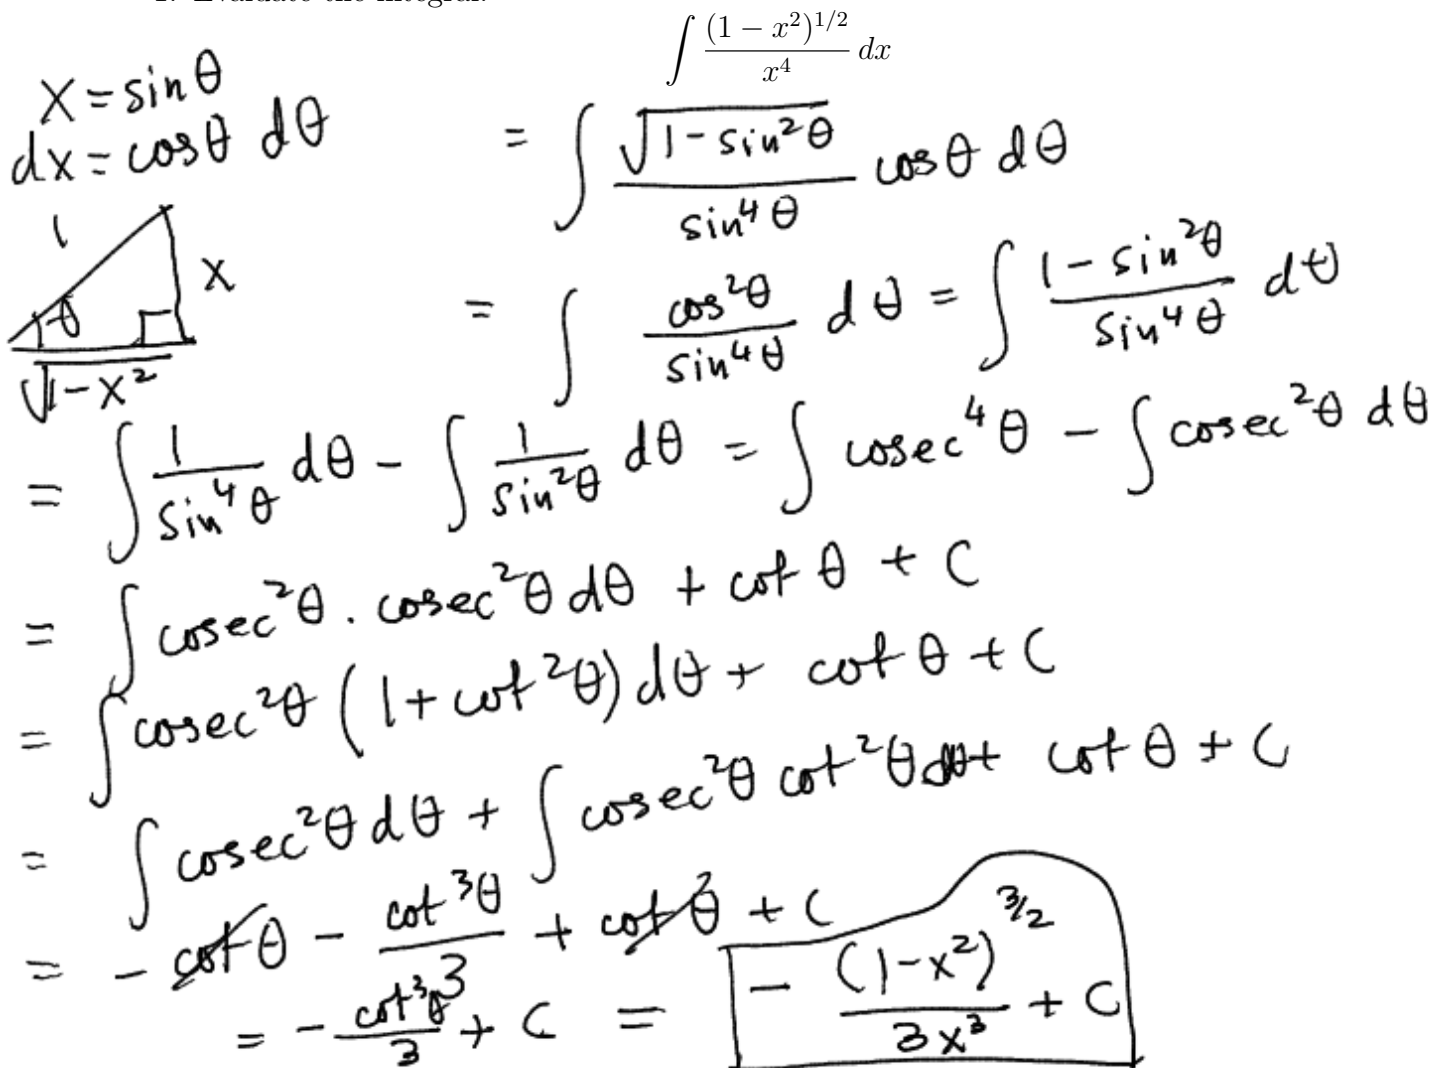 1. Evaluate the integral.
∫ (1 − x²)^{1/2} / x⁴ dx
x = sinθ
dx = cosθ dθ
= ∫ √(1 - sin²θ) / sin⁴θ cosθ dθ
1
x
θ
√(1-x²)
= ∫ cos²θ / sin⁴θ dθ = ∫ (1 - sin²θ) / sin⁴θ dθ
= ∫ 1 / sin⁴θ dθ - ∫ 1 / sin²θ dθ = ∫ cosec⁴θ - ∫ cosec²θ dθ
= ∫ cosec²θ . cosec²θ dθ + cot θ + C
= ∫ cosec²θ (1 + cot²θ) dθ + cot θ + C
= ∫ cosec²θ dθ + ∫ cosec²θ cot²θ dθ + cot θ + C
= - cotθ - cot³θ / 3 + cotθ + C
= - cot³θ / 3 + C = - (1-x²)^{3/2} / 3x³ + C